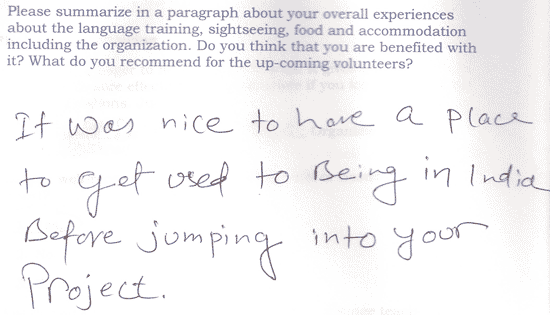 Please summarize in a paragraph about your overall experiences
about the language training, sightseeing, food and accommodation
including the organization. Do you think that you are benefited with
it? What do you recommend for the up-coming volunteers?
It was nice to have a place
to get used to Being in India
Before jumping into your
Project.